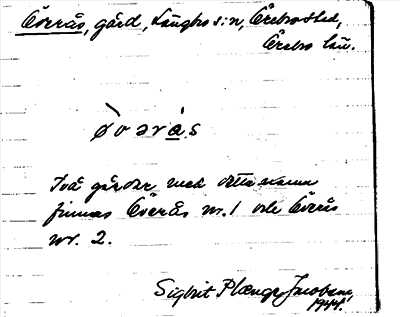 Överås, gård, Längbro s:n, Örebro std,
Örebro län.
òvəràs
Två gårdar med detta namn
finnas Överås nr. 1 och Överås
nr. 2.
Sigbrit Plænge Jacobson,
1944.